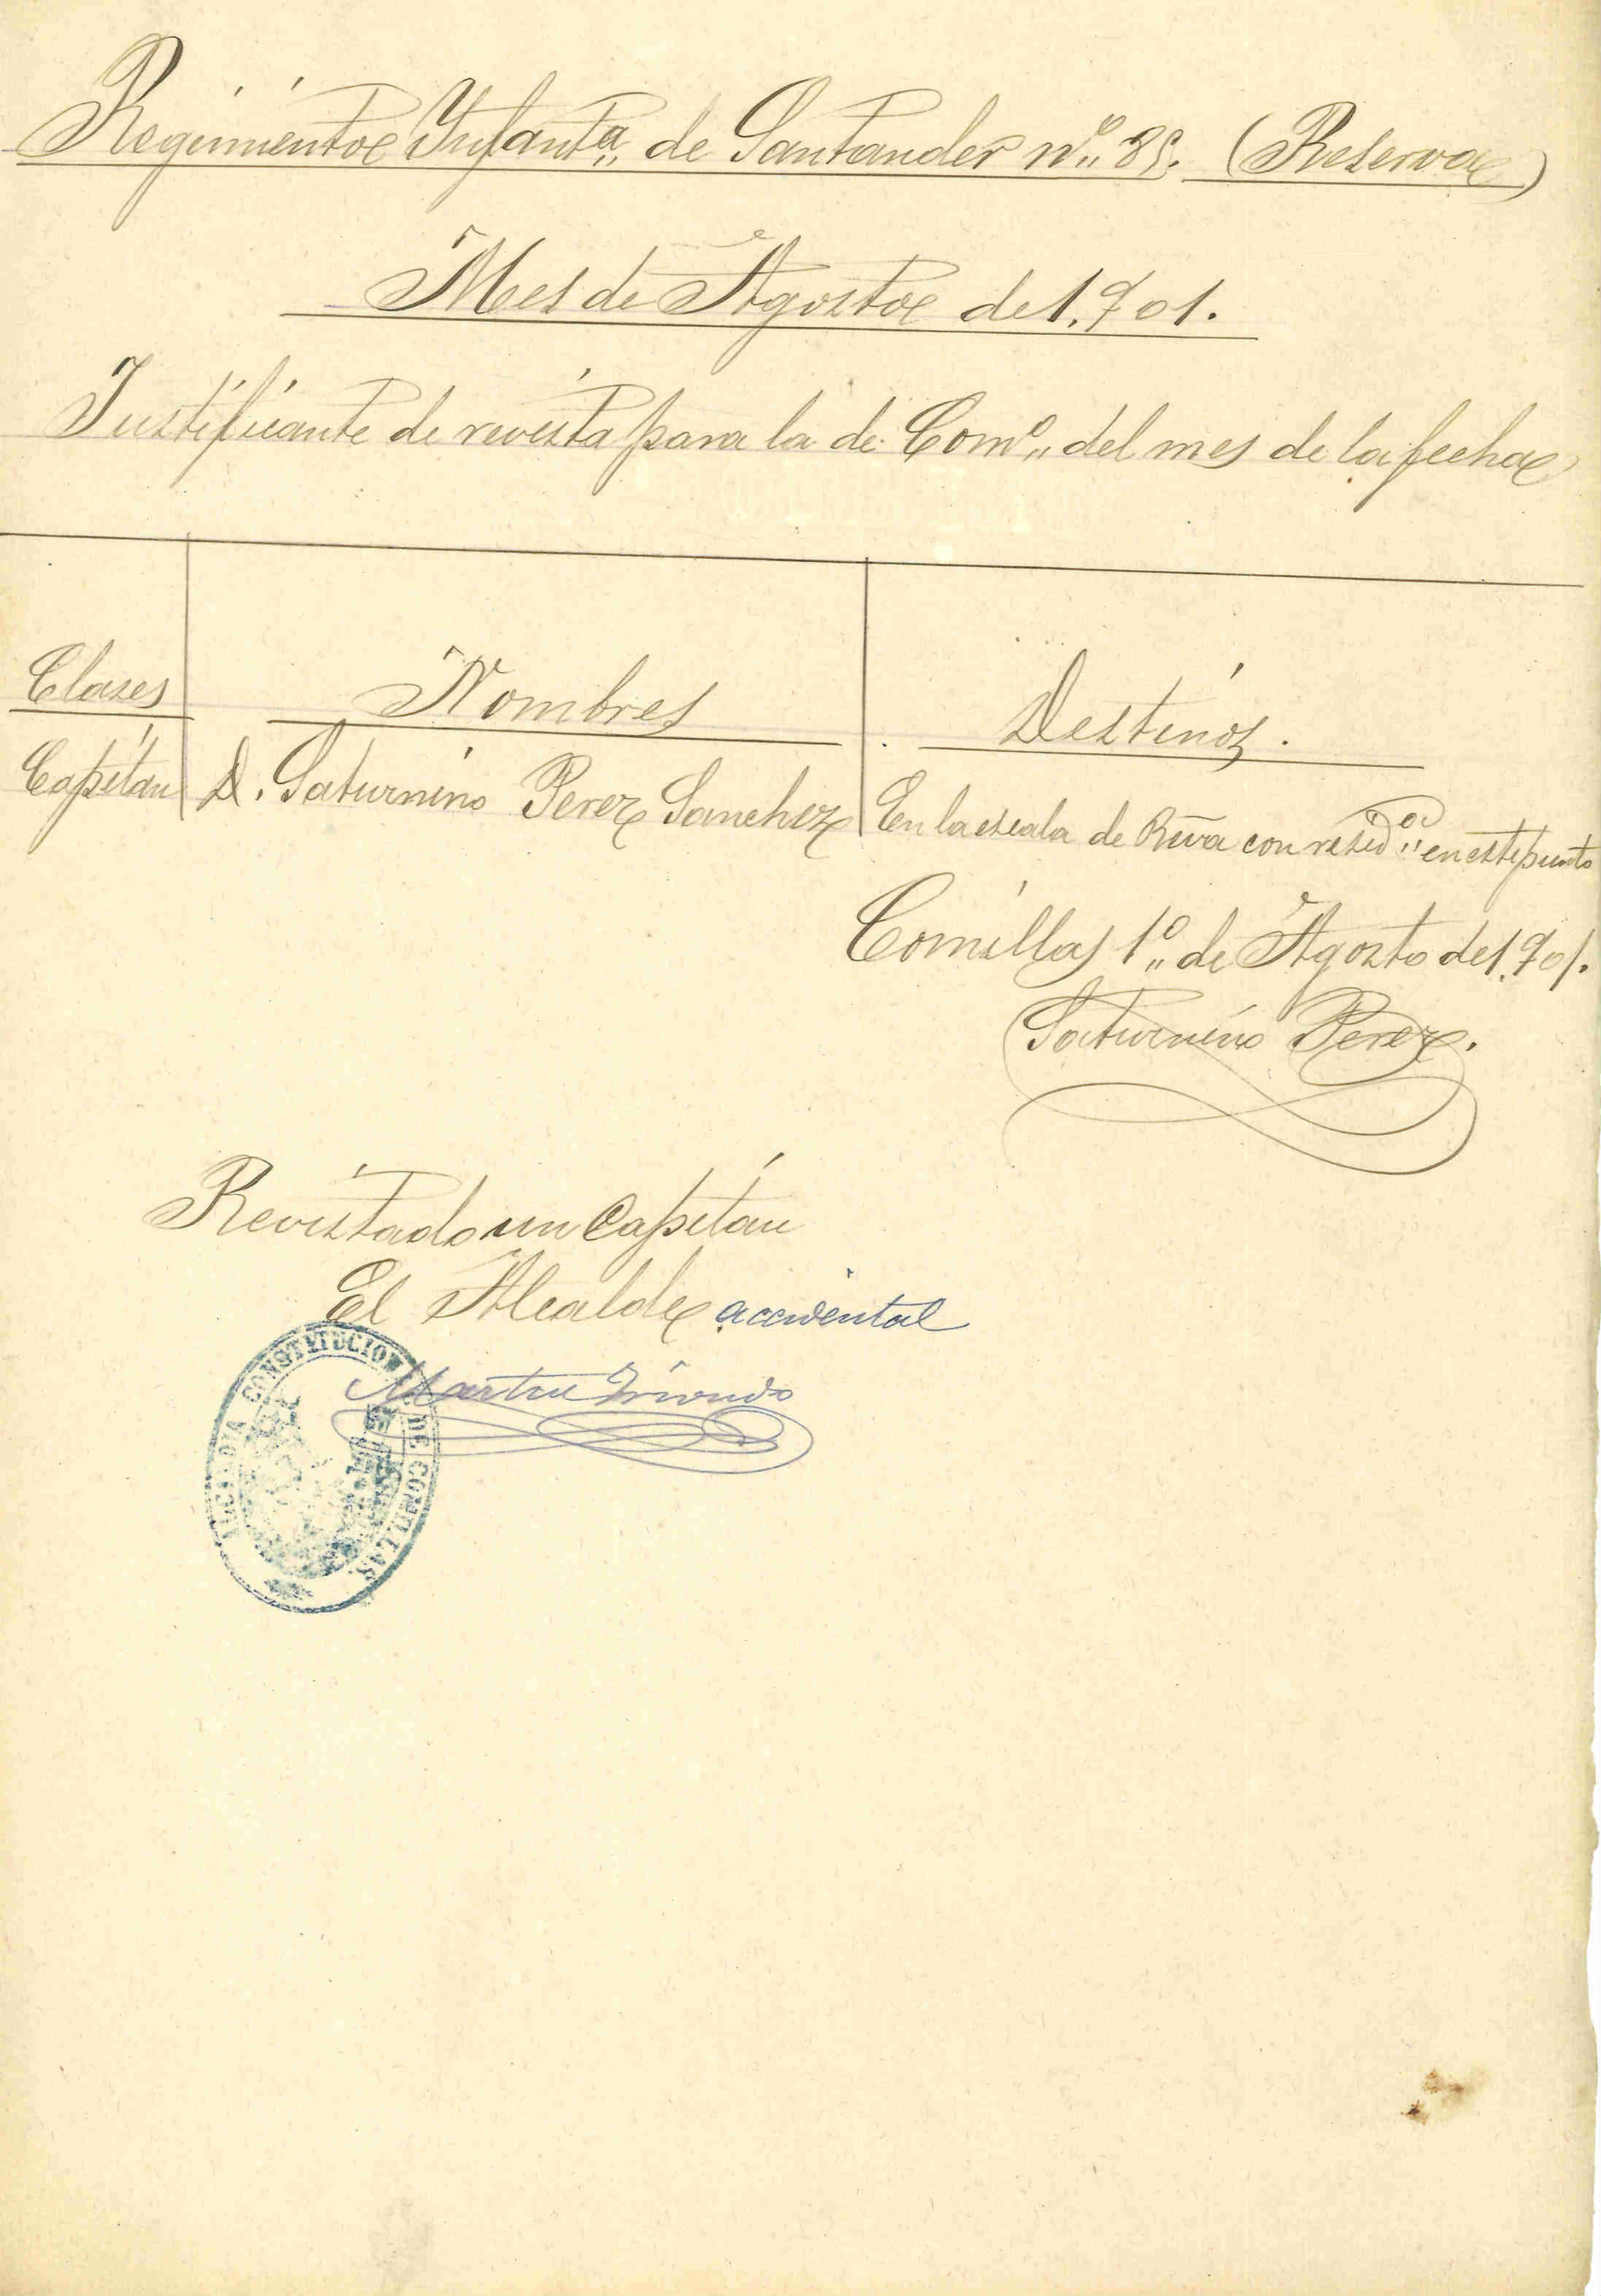 Regimiento Infantª de Santander nº 85. (Reserva)
Mes de Agosto de 1.901.
Justificante de revista para la de Comº del mes de la fecha
Clases Nombres Destinos.
Capitán D. Saturnino Perez Sanchez En la escala de Rva con residª en este punto
Comillas 1º de Agosto de 1.901.
Saturnino Perez.
Revistado un Capitán
El Alcalde accidental
Martin Iriondo
ALCALDIA CONSTITUCIONAL DE COMILLAS